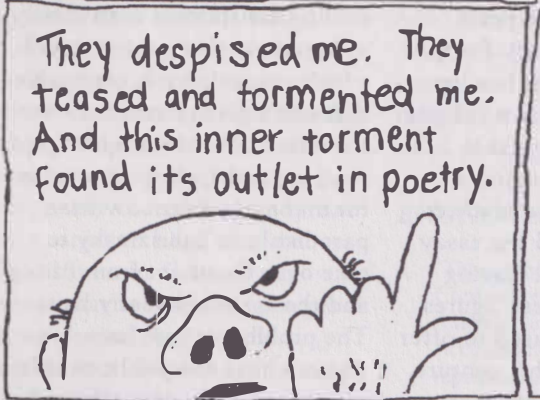 They despised me. They
teased and tormented me.
And this inner torment
found its outlet in poetry.